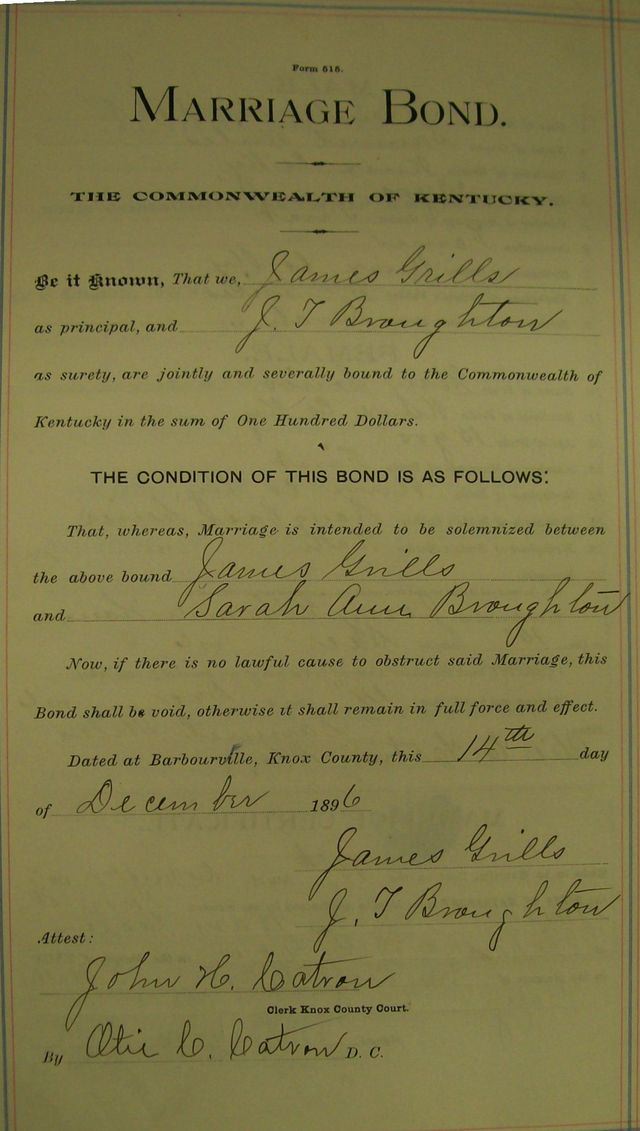 Form 515.
MARRIAGE BOND.
THE COMMONWEALTH OF KENTUCKY.
Be it Known, That we, James Grills
as principal, and J. T Broughton
as surety, are jointly and severally bound to the Commonwealth of
Kentucky in the sum of One Hundred Dollars.
THE CONDITION OF THIS BOND IS AS FOLLOWS:
That, whereas, Marriage is intended to be solemnized between
the above bound James Grills
and Sarah Ann Broughton
Now, if there is no lawful cause to obstruct said Marriage, this
Bond shall be void, otherwise it shall remain in full force and effect.
Dated at Barbourville, Knox County, this 14th day
of December 1896
James Grills
J. T Broughton
Attest:
John H. Catron
Clerk Knox County Court.
By Otie C. Catron D. C.